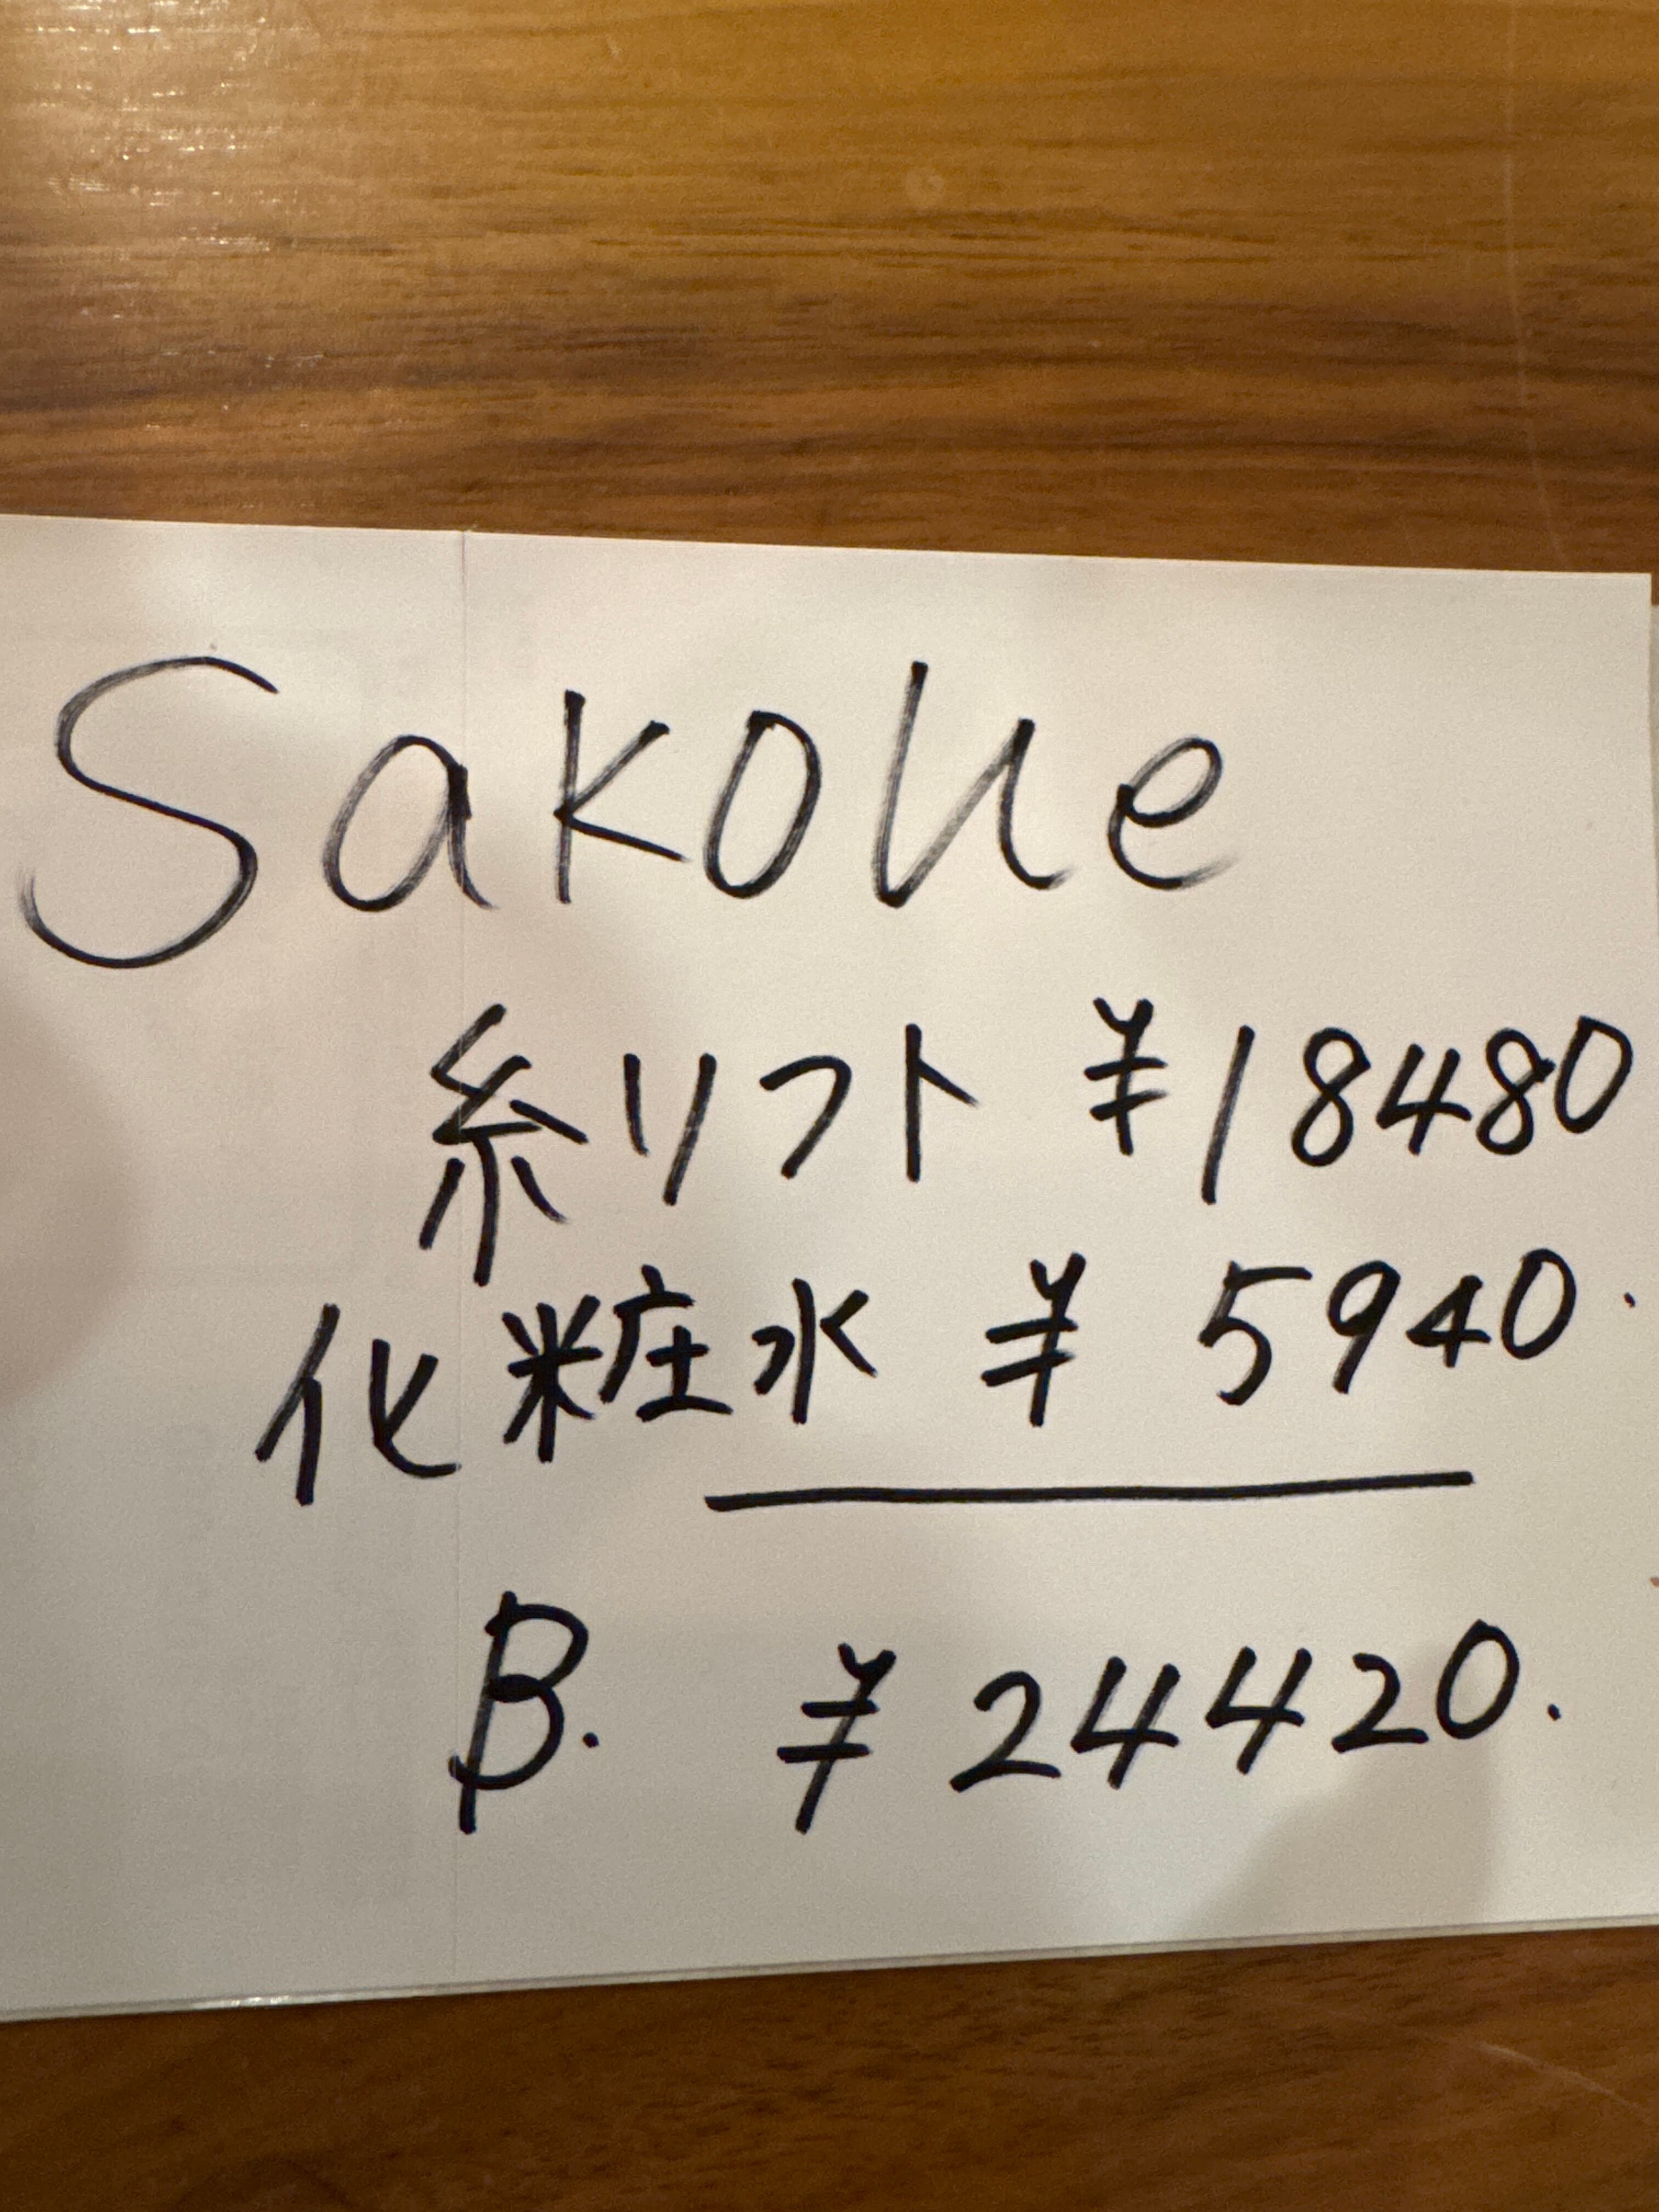 Sakoue
糸リフト ¥18480
化粧水 ¥ 5940.
B. ¥24420.